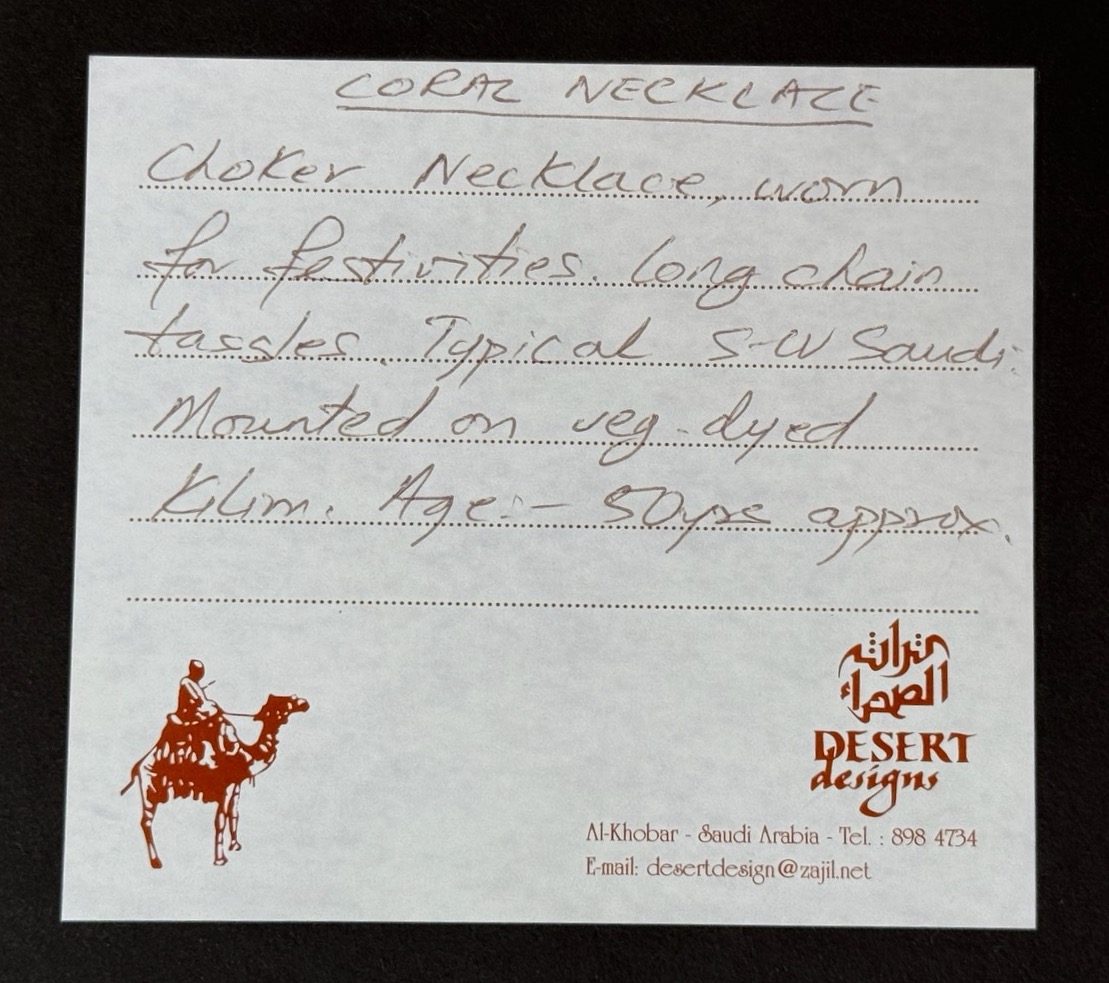 CORAL NECKLACE
Choker Necklace, worn
for festivities. Long chain
tassles. Typical S-W Saudi.
Mounted on veg-dyed
Kilim. Age:- 50yrs approx.
تراث
الصحراء
DESERT
designs
Al-Khobar - Saudi Arabia - Tel. : 898 4734
E-mail: desertdesign@zajil.net